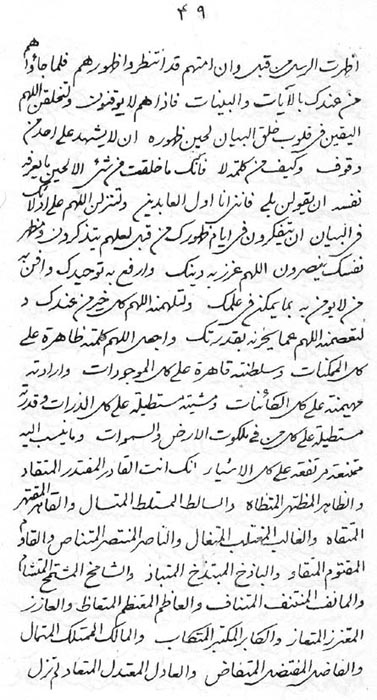 ٤٩
اظهرت الرسل من قبل وان امتهم قد انتظروا ظهورهم فلما جاؤاهم
من عندك بالايات والبينات فاذا هم لا يوقنون ولتخلقن اللهم
اليقين في قلوب خلق البيان لحين ظهوره ان لا يشهد على احد من
وقوف وكيف من كلمة لا فانك ما خلقت من شئ الا لحين ما يعرف
نفسه ان يقولن بلى فانني انا اول العابدين ولتنزلن اللهم على افئدة
في البيان ان يتفكرون في ايام ظهورك من قبل لعلهم يتذكرون ومظهر
نفسك ينصرون اللهم عزز به دينك وارفع به توحيدك وافن به
من لا يؤمن به بما يمكن في علمك ولتلهمنه اللهم كل خير من عندك و
لتعصمنه اللهم عما يحزنه بقدرتك واجعل اللهم كلمته ظاهرة على
كل الممكنات وسلطنته قاهرة على كل الموجودات وارادته
مهيمنة على كل الكائنات ومشيته مستطيلة على كل الذرات وقدرته
مستطيلة على كل من في ملكوت الارض والسموات وما ينسب اليه
ممتنعة مرتفعة على كل الاشياء انك انت القادر المقتدر المتقاد
والظاهر المظتهر المتظاه والسالط المستلط المتسال والقاهر المقتهر
المتقاه والغالب المغتلب المتغال والناصر المنتصر المتناص والقادم
المقتدم المتقاد والباذخ المبتذخ المتباذ والشامخ المشتمخ المتشام
والنائف المنتنف المتناف والعاظم المعتظم المتعاظ والعازز
المعتزز المتعاز والكابر المكتبر المتكاب والمالك الممتلك المتمال
والفاضل المفتضل المتفاض والعادل المعتدل المتعاد لم تزل